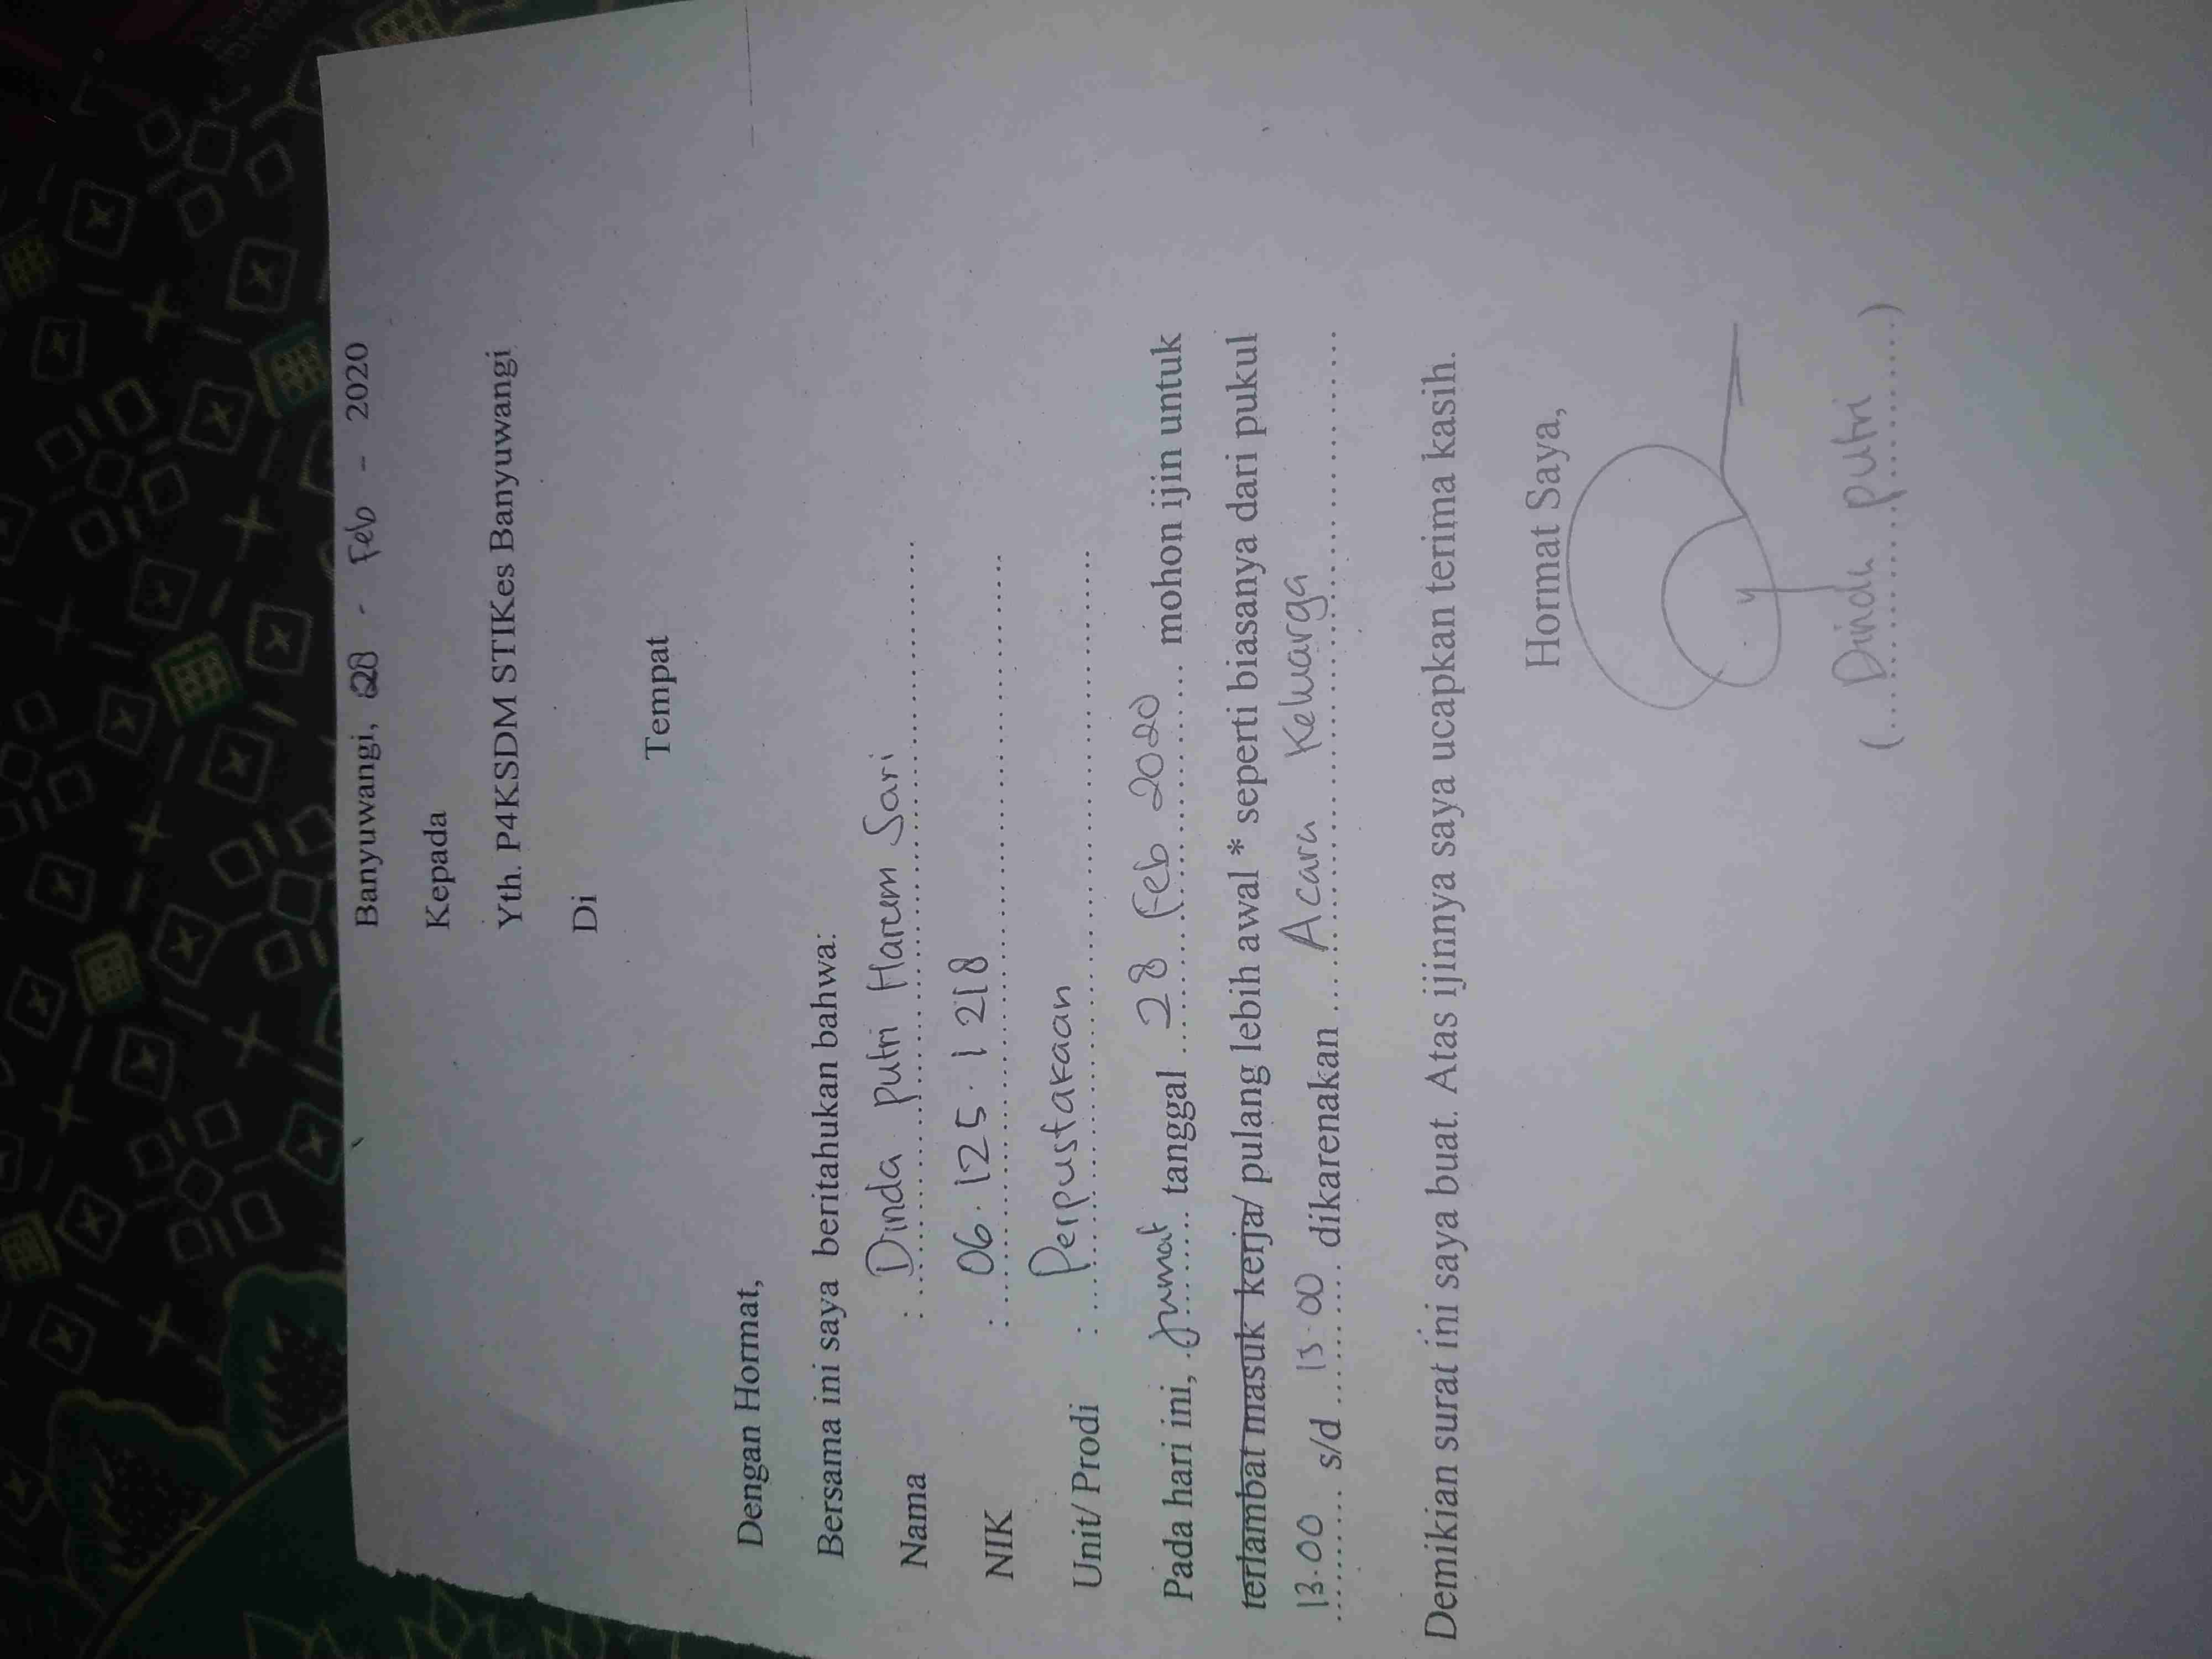 Banyuwangi, 28 - Feb - 2020
Kepada
Yth. P4KSDM STIKes Banyuwangi
Di
Tempat
Dengan Hormat,
Bersama ini saya beritahukan bahwa:
Nama : Dinda putri Harum Sari
NIK : 06.125.1218
Unit/ Prodi : Perpustakaan
Pada hari ini, Jumat tanggal 28 Feb 2020 mohon ijin untuk
terlambat masuk kerja/ pulang lebih awal * seperti biasanya dari pukul
13.00 s/d 15.00 dikarenakan Acara Keluarga
Demikian surat ini saya buat. Atas ijinnya saya ucapkan terima kasih.
Hormat Saya,
(Dinda putri)